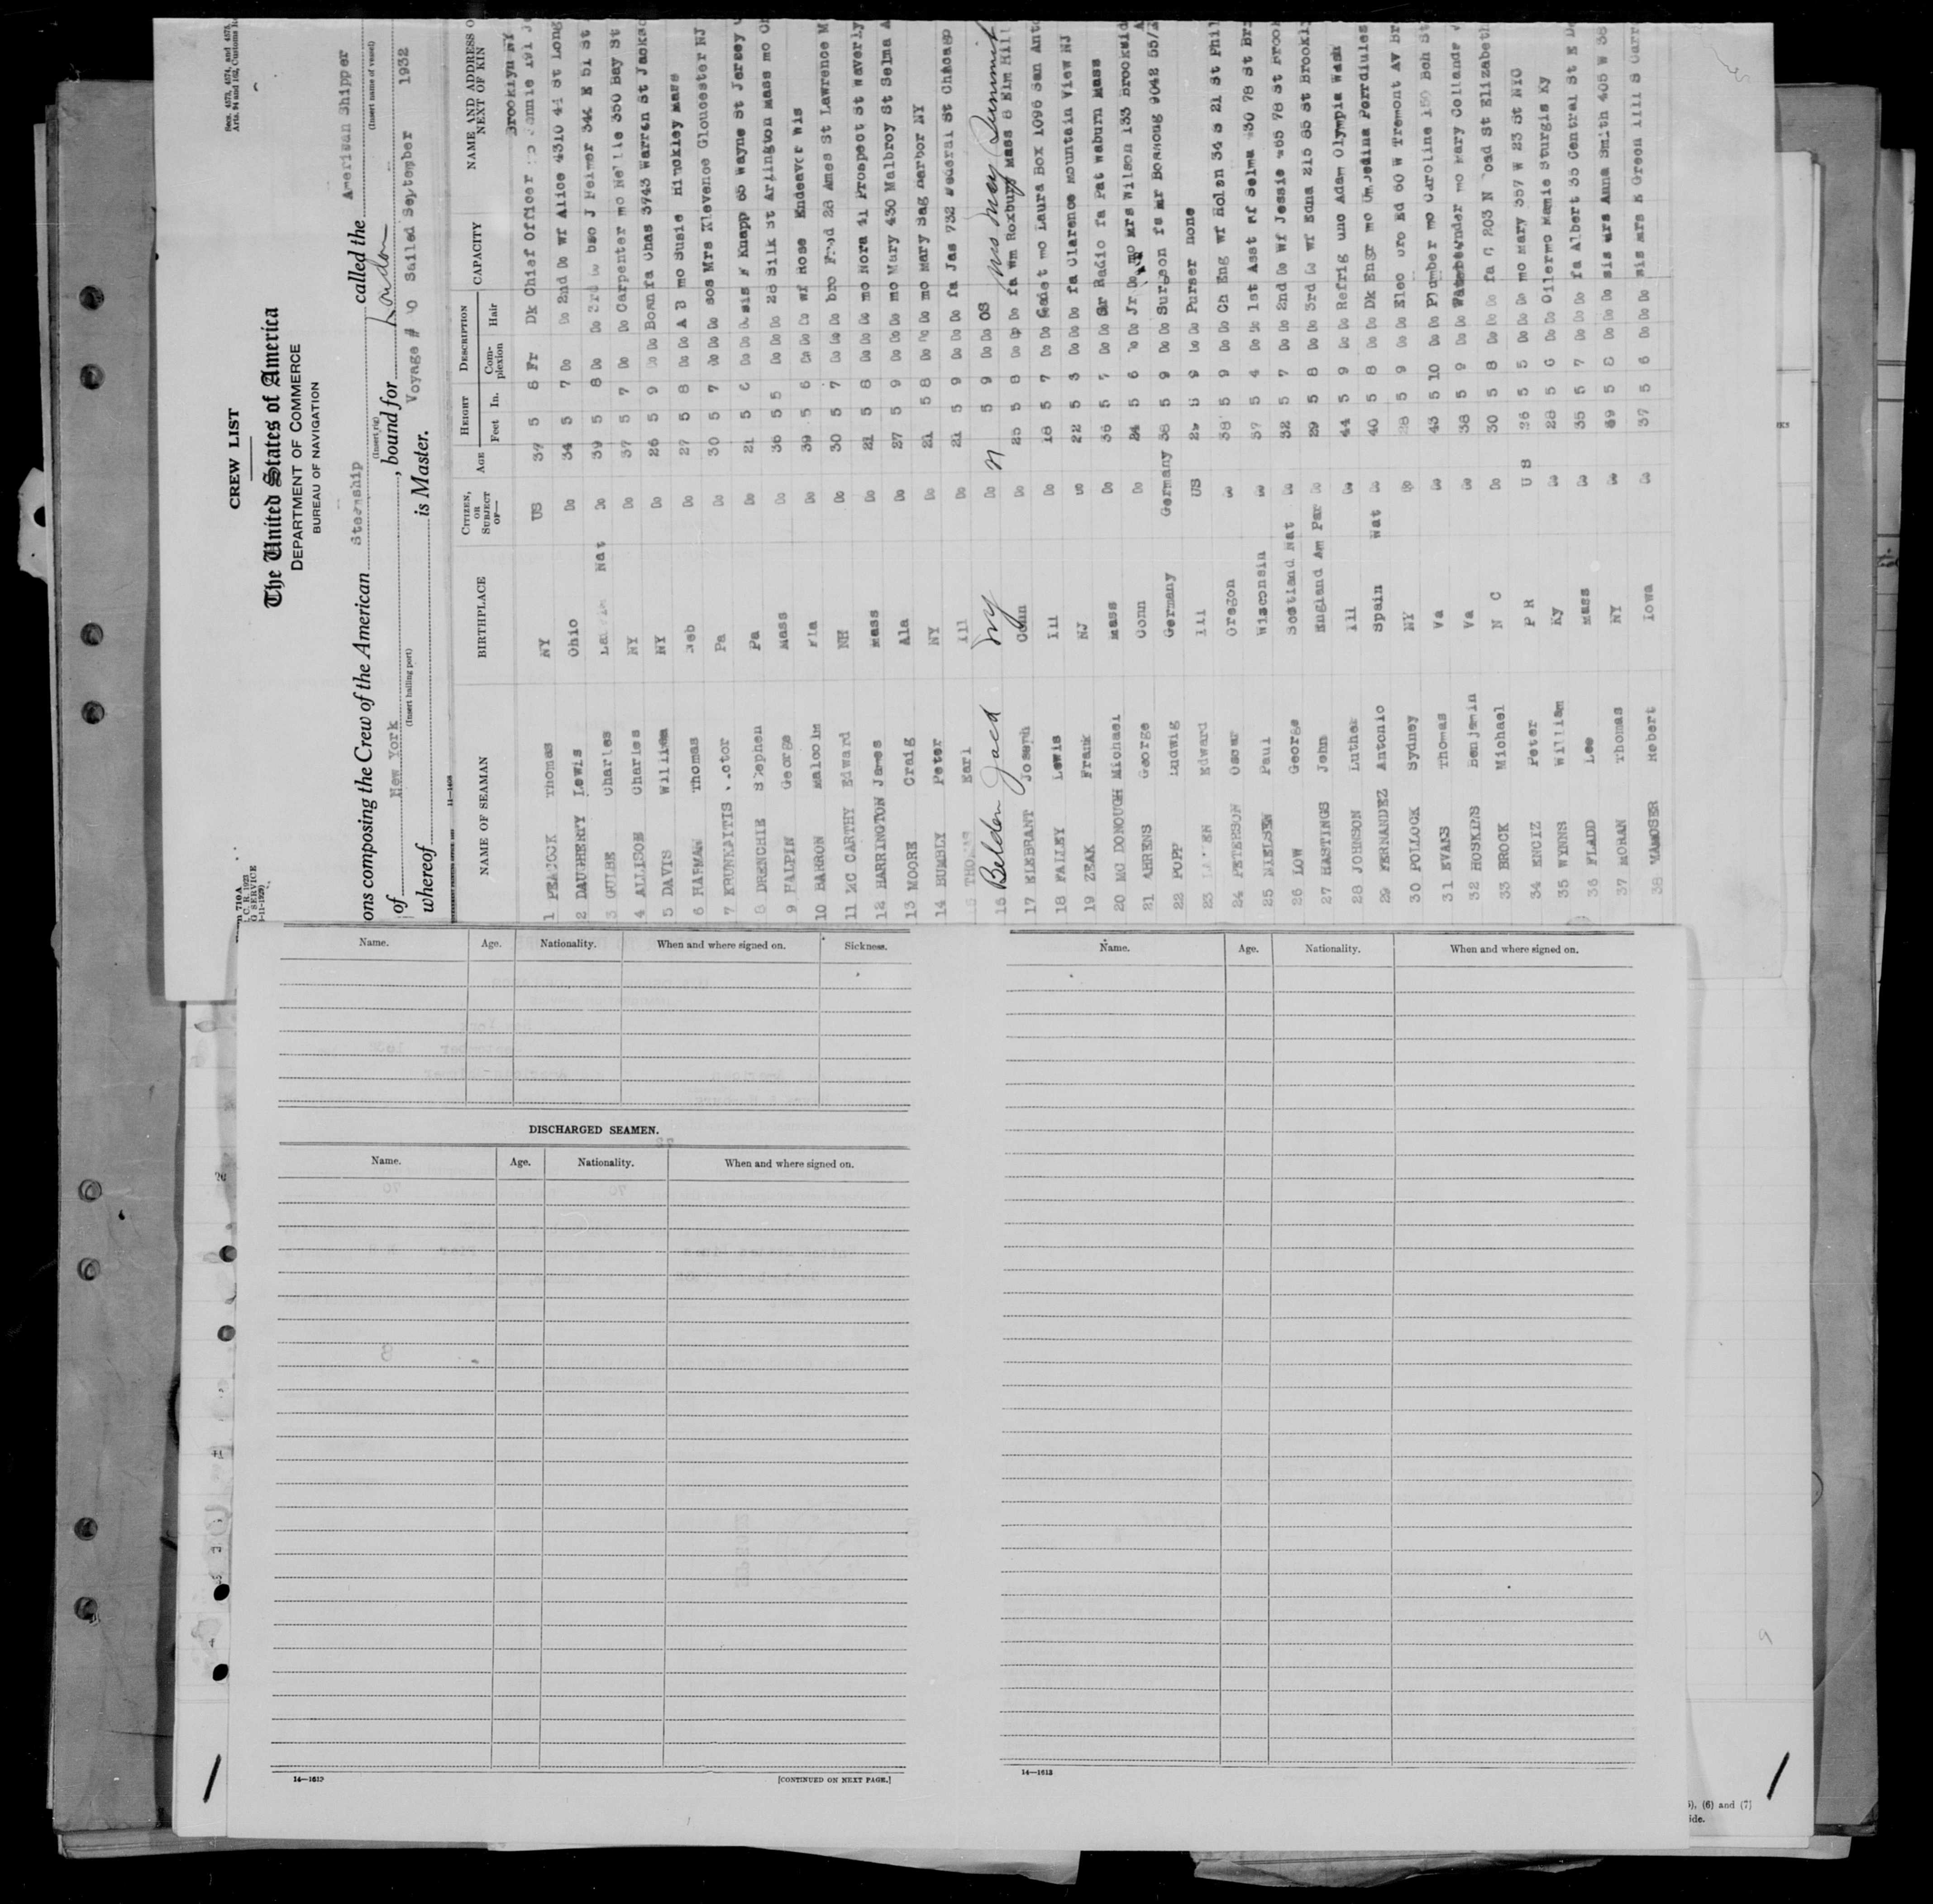 CREW LIST
The United States of America
DEPARTMENT OF COMMERCE
BUREAU OF NAVIGATION
ons composing the Crew of the American Steamship called the American Shipper
(Insert rig) (Insert name of vessel)
of New York, bound for London
(Insert hailing port)
whereof is Master. Voyage # Sailed September 1932
NAME OF SEAMAN BIRTHPLACE CITIZEN, OR SUBJECT OF— AGE HEIGHT Feet In. DESCRIPTION Complexion Hair CAPACITY NAME AND ADDRESS O NEXT OF KIN
Brooklyn NY
1 PEACOCK Thomas NY US 37 5 8 Fr Dk Chief Officer
2 DAUGHERTY Lewis Ohio Do 34 5 7 Do Do 2nd Do wf Alice 4310 44 St Long
3 GULBE Charles Nat Do 39 5 8 Do Do 3rd
4 ALLISON Charles NY Do 37 5 7 Do Do Carpenter mo Nellie 350 Bay St
5 DAVIS William NY Do 26 5 9 Do Do Bosn fa Chas 3743 Warren St Jackso
6 HARMAN Thomas Neb Do 27 5 8 Do Do A B mo Susie Hinckley Mass
7 KRUNKAITIS Pa Do 30 5 7 Do Do Do sos Mrs Klevence Gloucester NJ
8 DRENCHIE Stephen Pa Do 21 5 6 Do Do Do sis F Knapp 65 Wayne St Jersey
9 HALPIN George Mass Do 36 5 5 Do Do Do 28 Silk St Arlington Mass mo
10 BARRON Malcolm Fla Do 39 5 6 Do Do Do wf Rose Endeaver Wis
11 MC CARTHY Edward NH Do 30 5 7 Do Do Do bro Fred 28 Ames St Lawrence M
12 HARRINGTON James Mass Do 21 5 8 Do Do Do mo Nora 41 Prospect St Waverly
13 MOORE Craig Ala Do 27 5 9 Do Do Do mo Mary 430 Malbroy St Selma A
14 BUMBLY Peter NY Do 21 5 8 Do Do Do mo Mary Sag Harbor NY
15 THOMAS Earl Ill Do 21 5 9 Do Do Do fa Jas 732 Federal St Chicago
16 Belden Jack NY Do 5 9 Do Do OS Mrs May Summit
17 KLEBRANT Joseph Conn Do 25 5 8 Do Do Do fa Wm Roxbury Mass 8 Elm Hill
18 FAILEY Lewis Ill Do 18 5 7 Do Do Cadet mo Laura Box 1096 San Anto
19 ZEAK Frank NJ Do 22 5 Do Do Do fa Clarence Mountain View NJ
20 MC DONOUGH Michael Mass Do 36 5 7 Do Do Radio fa Pat Waburn Mass
21 AHRENS George Conn Do 24 5 6 Do Do Jr Do mo Mrs Wilson 133 Brooksid
22 POPP Ludwig Germany Germany 38 5 9 Do Do Surgeon
23 Edward Ill US 5 9 Do Do Purser none
24 PETERSON Oscar Oregon Do 38 5 9 Do Do Ch Eng wf Helen 34 S 21 St Phil
25 NIELSEN Paul Wisconsin Do 37 5 4 Do Do 1st Asst wf Selma 430 78 St Br
26 LOW George Scotland Nat Do 32 5 7 Do Do 2nd Do Wf Jessie 465 78 St Brook
27 HASTINGS John England Am Par Do 29 5 8 Do Do 3rd Do wf Edna 215 85 St Brookl
28 JOHNSON Luther Ill Do 44 5 9 Do Do Refrig unc Adam Olympia Wash
29 FERNANDEZ Antonio Spain Nat Do 40 5 8 Do Do Dk Engr
30 POLLOCK Sydney NY Do 28 5 9 Do Do Elec bro Ed 60 W Tremont AV Br
31 EVANS Thomas Va Do 43 5 10 Do Do Plumber mo Caroline
32 HOSKINS Benjamin Va Do 38 5 9 Do Do mo Mary Collands
33 BROCK Michael N C Do 30 5 8 Do Do Do fa
34 ENCIZ Peter P R U S 26 5 5 Do Do Do mo Mary 357 W 23 St NYC
35 WINNS William Ky Do 28 5 6 Do Do Oiler mo Mamie Sturgis Ky
36 FLADD Lee Mass Do 35 5 7 Do Do Do fa Albert 35 Central St E
37 MORAN Thomas NY Do 5 8 Do Do Do sis Mrs Anna Smith 405 W 38
38 Robert Iowa Do 37 5 6 Do Do Do sis Mrs E Green 1111 S
Name. Age. Nationality. When and where signed on. Sickness.
DISCHARGED SEAMEN.
Name. Age. Nationality. When and where signed on.
14—1613
[CONTINUED ON NEXT PAGE.]
Name. Age. Nationality. When and where signed on.
14—1613
(6) and (7)
ide.